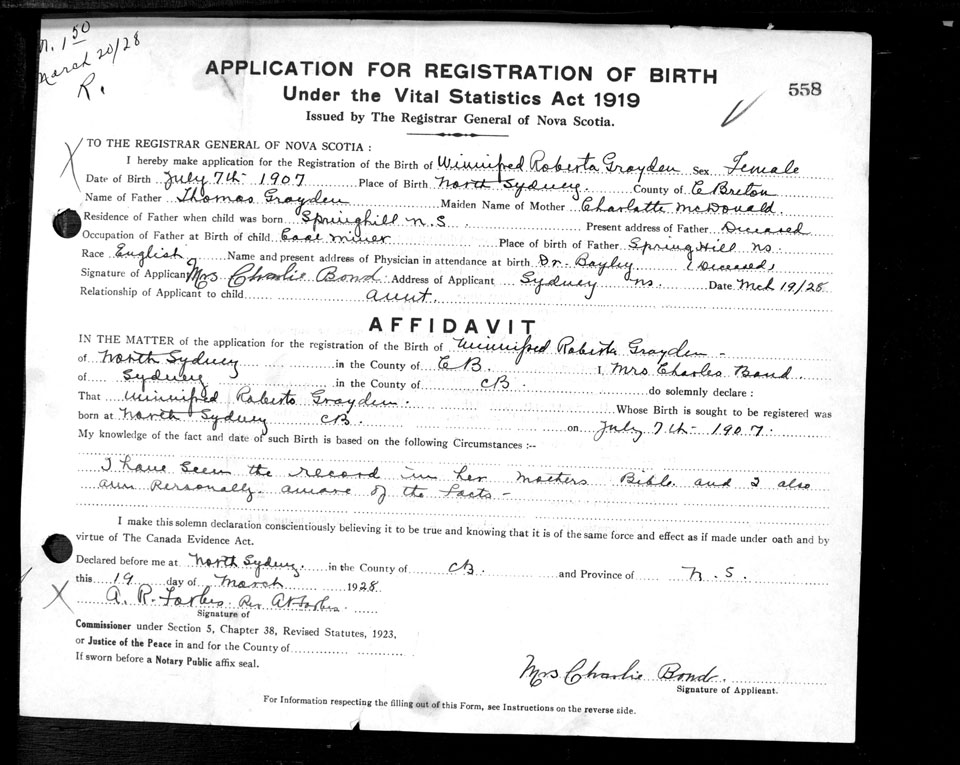 N. 1 50
March 20/28
R.
APPLICATION FOR REGISTRATION OF BIRTH
558
Under the Vital Statistics Act 1919
Issued by The Registrar General of Nova Scotia.
TO THE REGISTRAR GENERAL OF NOVA SCOTIA :
I hereby make application for the Registration of the Birth of Winnifred Roberta Grayden Sex Female
Date of Birth July 7th 1907 Place of Birth North Sydney. County of C Breton
Name of Father Thomas Grayden Maiden Name of Mother Charlotte McDonald.
Residence of Father when child was born Springhill N.S. Present address of Father Deceased
Occupation of Father at Birth of child Coal miner Place of birth of Father Spring Hill NS.
Race English Name and present address of Physician in attendance at birth Dr. Bayley (Deceased)
Signature of Applicant Mrs Charlie Bond Address of Applicant Sydney NS. Date Mch 19/28
Relationship of Applicant to child aunt.
AFFIDAVIT
IN THE MATTER of the application for the registration of the Birth of Winnifred Roberta Grayden -
of North Sydney in the County of C B. I, Mrs Charles Bond.
of Sydney in the County of CB. do solemnly declare :
That Winnifred Roberta Grayden. Whose Birth is sought to be registered was
born at North Sydney CB. on July 7th - 1907.
My knowledge of the fact and date of such Birth is based on the following Circumstances :--
I have seen the record in her mothers Bible and I also
am Personally aware of the facts -
I make this solemn declaration conscientiously believing it to be true and knowing that it is of the same force and effect as if made under oath and by
virtue of The Canada Evidence Act.
Declared before me at North Sydney. in the County of CB and Province of N. S.
this 19 day of March 1928
A. R. Forbes. Per
Signature of
Commissioner under Section 5, Chapter 38, Revised Statutes, 1923,
or Justice of the Peace in and for the County of
If sworn before a Notary Public affix seal.
Mrs Charlie Bond.
Signature of Applicant.
For Information respecting the filling out of this Form, see Instructions on the reverse side.